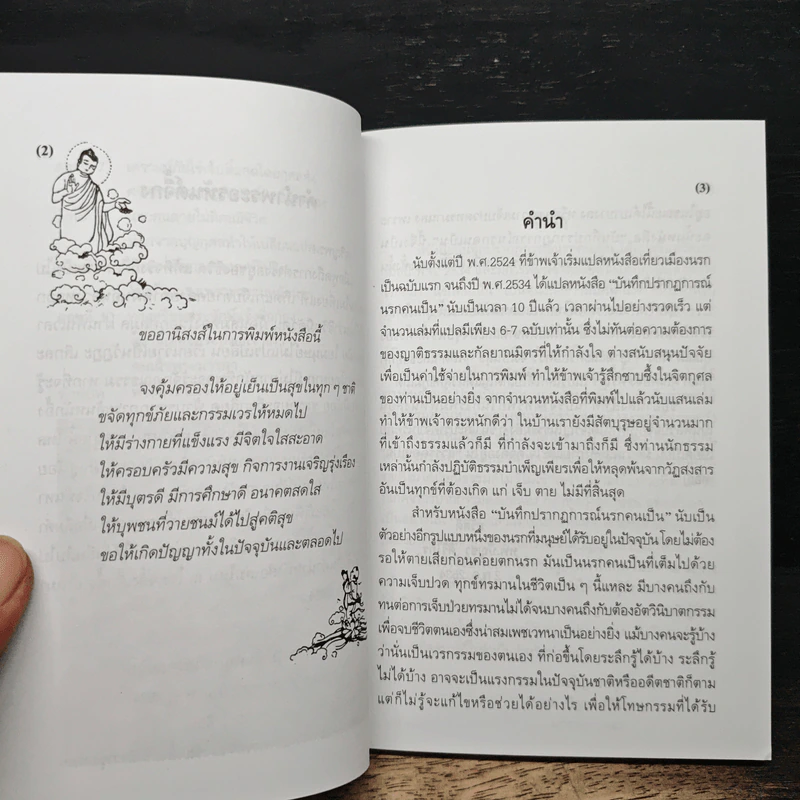 (2)
ขออานิสงส์ในการพิมพ์หนังสือนี้
จงคุ้มครองให้อยู่เย็นเป็นสุขในทุก ๆ ชาติ
ขจัดทุกข์ภัยและกรรมเวรให้หมดไป
ให้มีร่างกายที่แข็งแรง มีจิตใจใสสะอาด
ให้ครอบครัวมีความสุข กิจการงานเจริญรุ่งเรือง
ให้มีบุตรดี มีการศึกษาดี อนาคตสดใส
ให้บุพชนที่วายชนม์ได้ไปสู่คติสุข
ขอให้เกิดปัญญาทั้งในปัจจุบันและตลอดไป
(3)
คำนำ
นับตั้งแต่ปี พ.ศ.2524 ที่ข้าพเจ้าเริ่มแปลหนังสือเที่ยวเมืองนรก
เป็นฉบับแรก จนถึงปี พ.ศ.2534 ได้แปลหนังสือ “บันทึกปรากฏการณ์
นรกคนเป็น” นับเป็นเวลา 10 ปีแล้ว เวลาผ่านไปอย่างรวดเร็ว แต่
จำนวนเล่มที่แปลมีเพียง 6-7 ฉบับเท่านั้น ซึ่งไม่ทันต่อความต้องการ
ของญาติธรรมและกัลยาณมิตรที่ให้กำลังใจ ต่างสนับสนุนปัจจัย
เพื่อเป็นค่าใช้จ่ายในการพิมพ์ ทำให้ข้าพเจ้ารู้สึกซาบซึ้งในจิตกุศล
ของท่านเป็นอย่างยิ่ง จากจำนวนหนังสือที่พิมพ์ไปแล้วนับแสนเล่ม
ทำให้ข้าพเจ้าตระหนักดีว่า ในบ้านเรายังมีสัตบุรุษอยู่จำนวนมาก
ที่เข้าถึงธรรมแล้วก็มี ที่กำลังจะเข้ามาถึงก็มี ซึ่งท่านนักธรรม
เหล่านั้นกำลังปฏิบัติธรรมบำเพ็ญเพียรเพื่อให้หลุดพ้นจากวัฏสงสาร
อันเป็นทุกข์ที่ต้องเกิด แก่ เจ็บ ตาย ไม่มีที่สิ้นสุด
สำหรับหนังสือ “บันทึกปรากฏการณ์นรกคนเป็น” นับเป็น
ตัวอย่างอีกรูปแบบหนึ่งของนรกที่มนุษย์ได้รับอยู่ในปัจจุบัน โดยไม่ต้อง
รอให้ตายเสียก่อนค่อยตกนรก มันเป็นนรกคนเป็นที่เต็มไปด้วย
ความเจ็บปวด ทุกข์ทรมานในชีวิตเป็น ๆ นี้แหละ มีบางคนถึงกับ
ทนต่อการเจ็บป่วยทรมานไม่ได้จนบางคนถึงกับต้องอัตวินิบาตกรรม
เพื่อจบชีวิตตนเองซึ่งน่าสมเพชเวทนาเป็นอย่างยิ่ง แม้บางคนจะรู้บ้าง
ว่านั่นเป็นเวรกรรมของตนเอง ที่ก่อขึ้นโดยระลึกรู้ได้บ้าง ระลึกรู้
ไม่ได้บ้าง อาจจะเป็นแรงกรรมในปัจจุบันชาติหรืออดีตชาติก็ตาม
แต่ก็ไม่รู้จะแก้ไขหรือช่วยได้อย่างไร เพื่อให้โทษกรรมที่ได้รับ